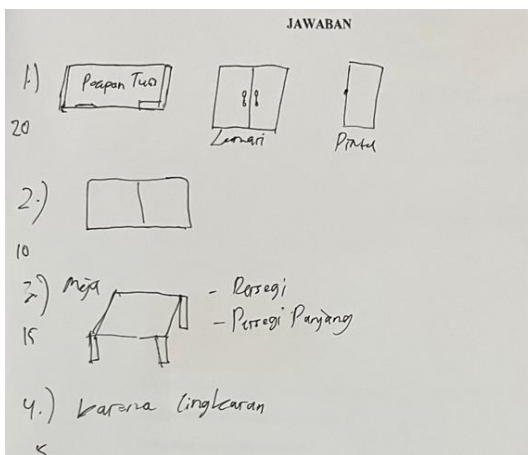 JAWABAN
1.) Papan Tulis
Lemari
Pintu
20
2.)
10
3.) Meja
- Persegi
- Persegi Panjang
15
4.) karena lingkaran
5